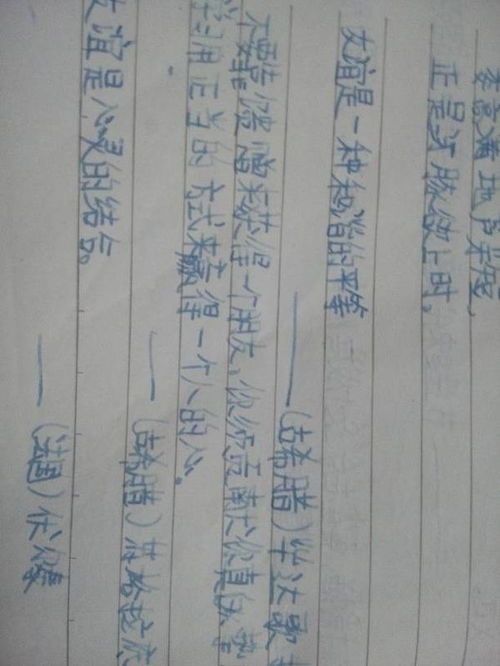 蒌蒿满地芦芽短,
正是河豚欲上时。
友谊是一种和谐的平等
——(古希腊)毕达哥
不要靠馈赠来获得一个朋友,你须贡献你真
学习用正当的方式来赢得一个人的心。
——(古希腊)苏格拉底
友谊是心灵的结合。
——(法国)伏尔泰